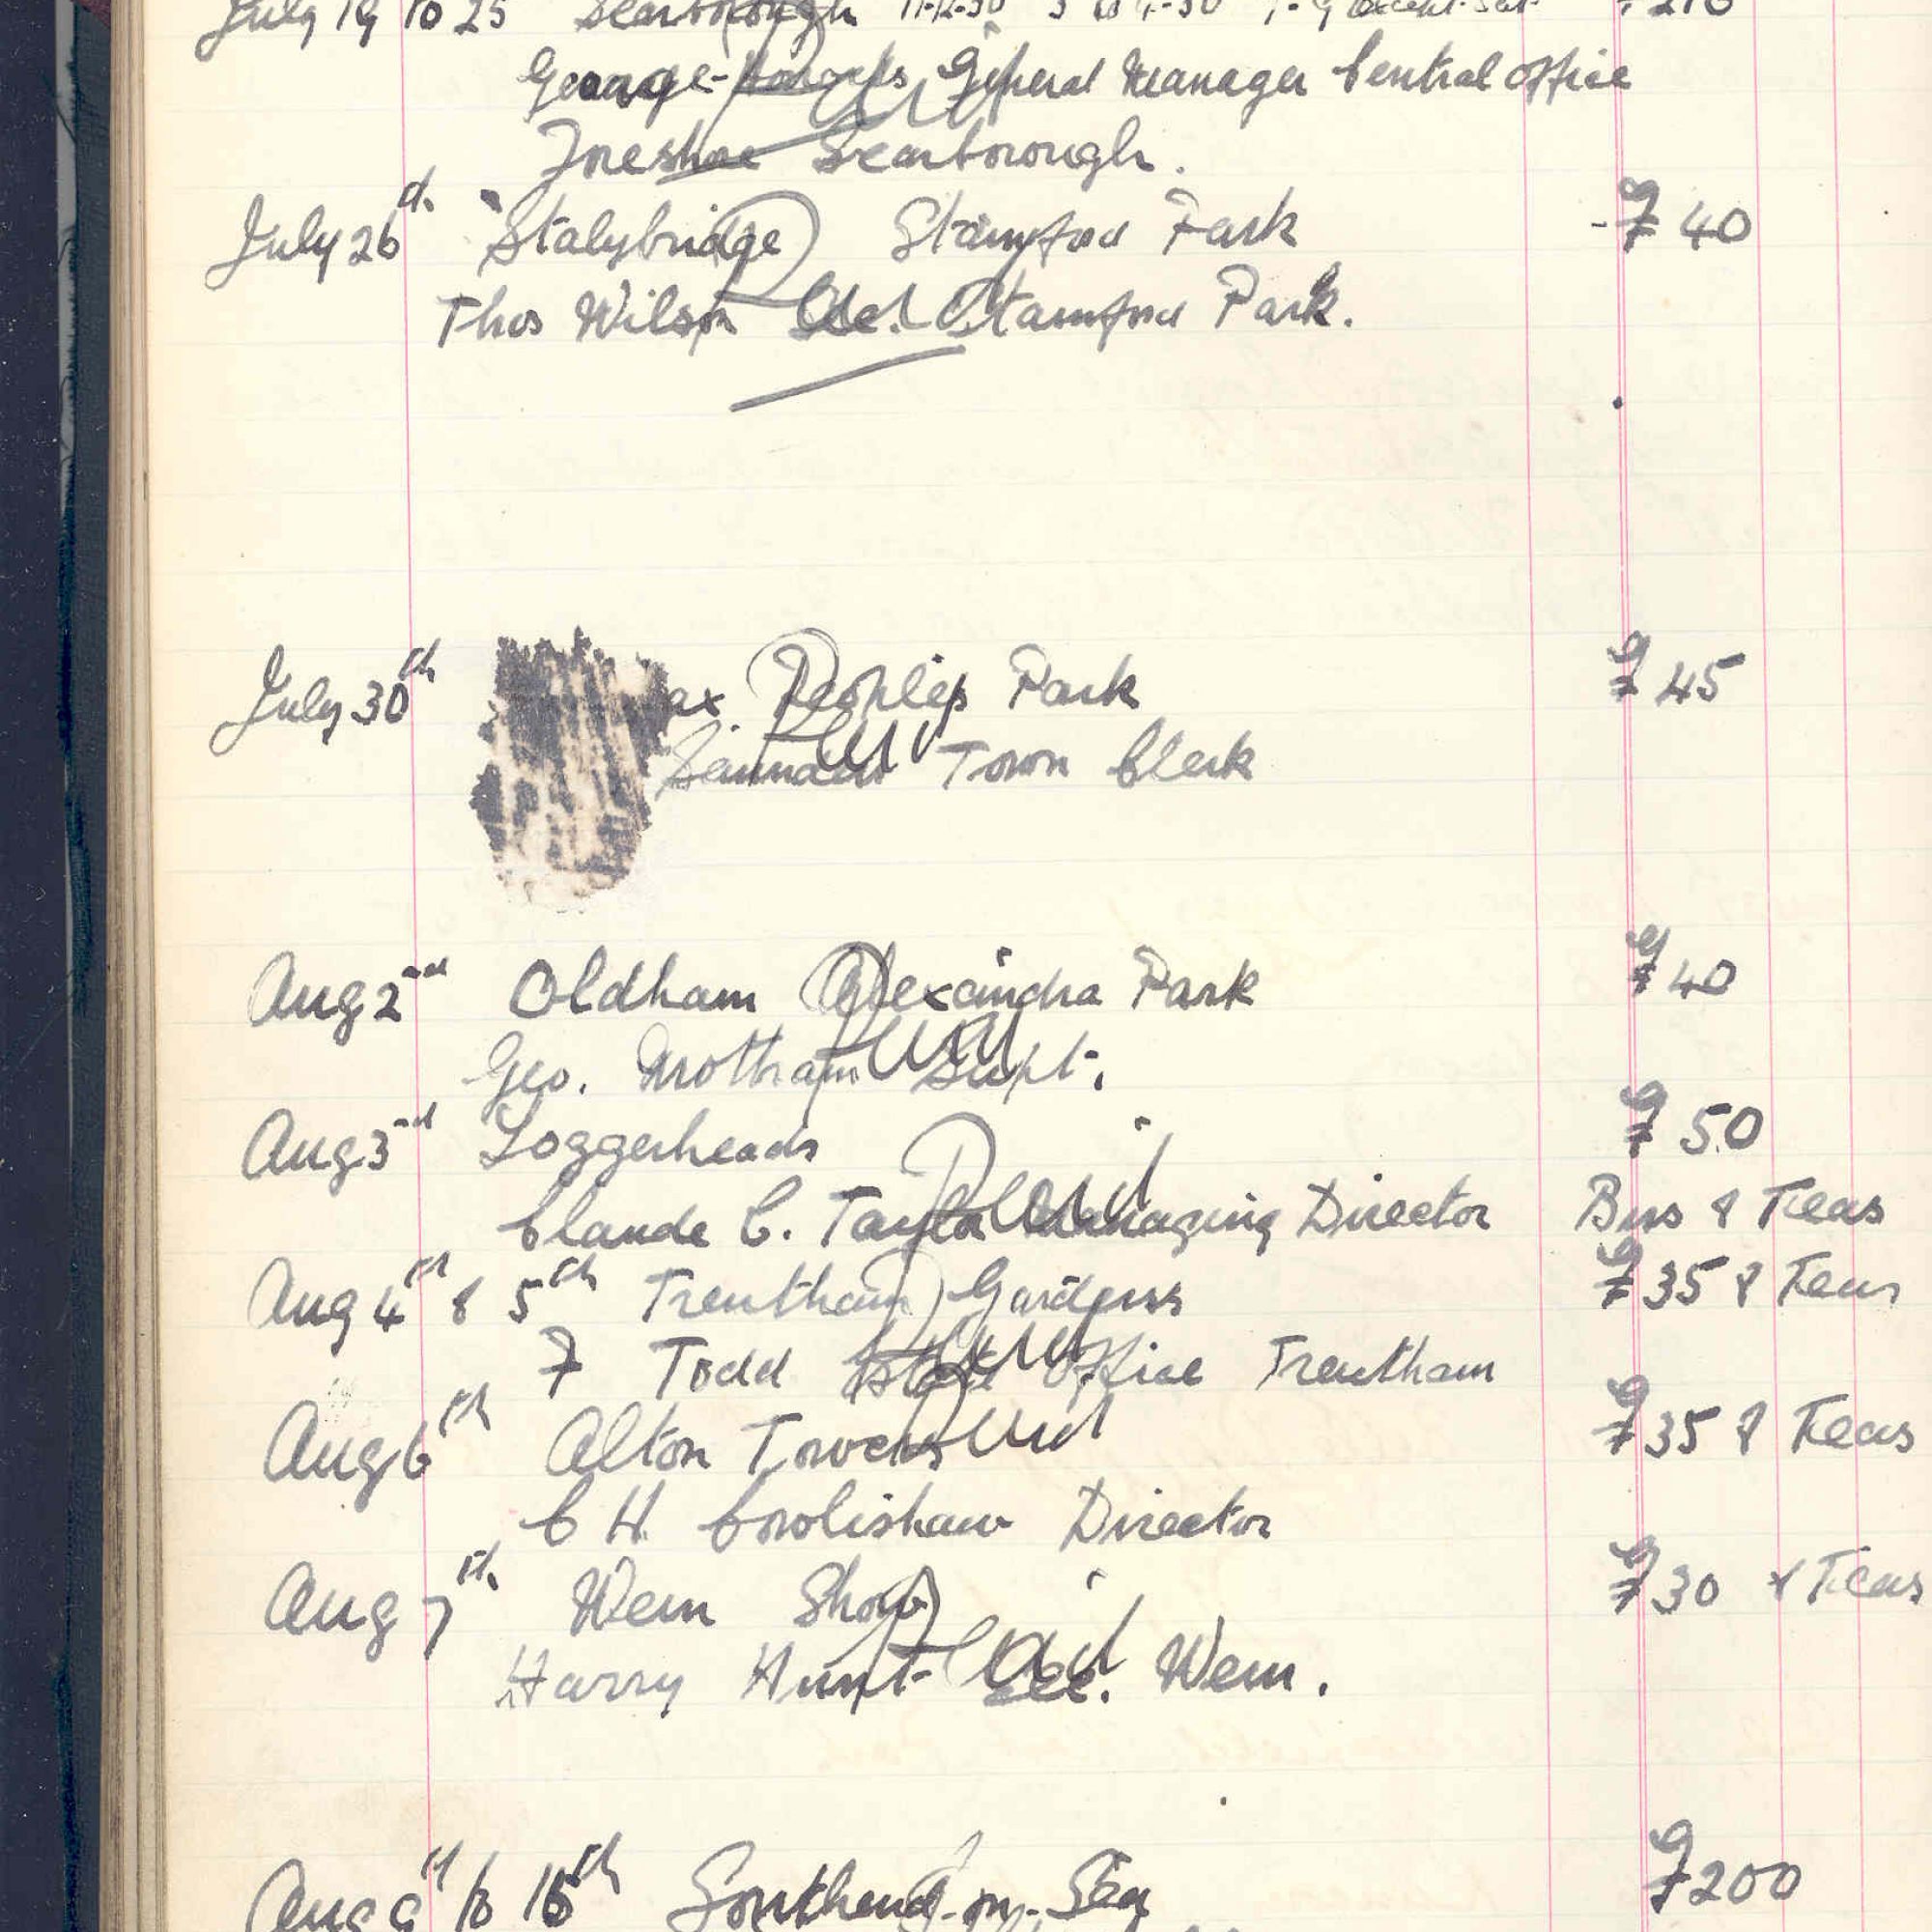 July 19 to 25 Scarborough 11-12-30 3 to 4-30 7-9 except Sat. £210
George General Manager Central Office
Foreshore Scarborough.
July 26th Stalybridge Stamford Park - £40
Thos Wilson Sec. Stamford Park.
Paid
July 30th ax. Peoples Park £45
Town Clerk
Paid
Aug 2nd Oldham Alexandra Park £40
Geo. Mottram Supt.
Paid
Aug 3rd Loggerheads £50
Claude C. Taylor Managing Director Bus & Teas
Paid
Aug 4th & 5th Trentham Gardens £35 & Teas
F Todd Estate Office Trentham
Paid
Aug 6th Alton Towers £35 & Teas
Paid
C H Director
Aug 7th Wem Show £30 & Teas
Harry Hunt Sec. Wem.
Paid
Aug 9th to 15th Southend-on-Sea £200